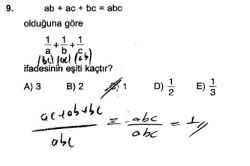 9. ab + ac + bc = abc
olduğuna göre
1/a + 1/b + 1/c
(bc) (ac) (ab)
ifadesinin eşiti kaçtır?
A) 3 B) 2 C) 1 D) 1/2 E) 1/3
ac+ab+bc/abc = abc/abc = 1//